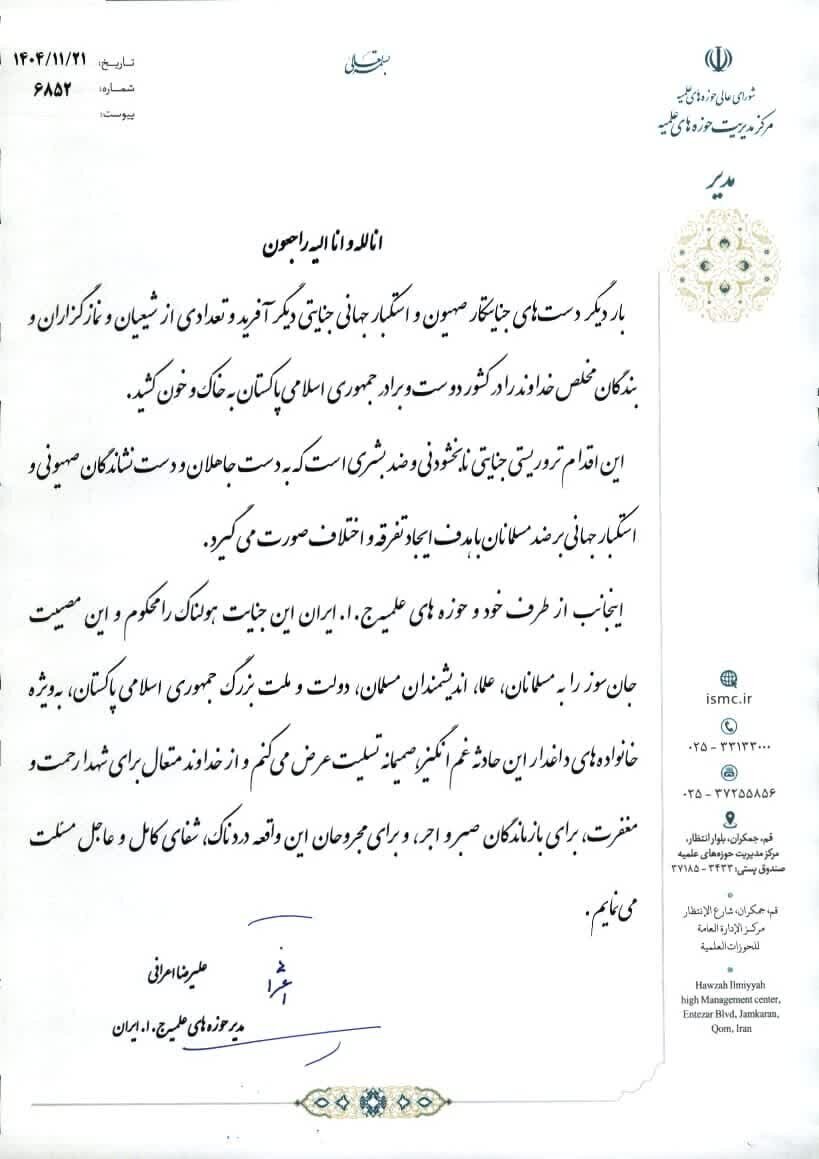 بسمه تعالی
شورای عالی حوزه های علمیه
مرکز مدیریت حوزه های علمیه
مدیر
تاریخ: ۱۴۰۴/۱۱/۲۱
شماره: ۶۸۵۲
پیوست:
انالله و انا الیه راجعون
بار دیگر دست‌های جنایتکار صهیون و استکبار جهانی جنایتی دیگر آفرید و تعدادی از شیعیان و نمازگزاران و
بندگان مخلص خداوند را در کشور دوست و برادر جمهوری اسلامی پاکستان به خاک و خون کشید.
این اقدام تروریستی جنایتی نابخشودنی و ضد بشری است که به دست جاهلان و دست نشاندگان صهیونی و
استکبار جهانی بر ضد مسلمانان با هدف ایجاد تفرقه و اختلاف صورت می گیرد.
اینجانب از طرف خود و حوزه های علمیه ج.ا. ایران این جنایت هولناک را محکوم و این مصیبت
جان سوز را به مسلمانان، علما، اندیشمندان مسلمان، دولت و ملت بزرگ جمهوری اسلامی پاکستان، به‌ویژه
خانواده های داغدار این حادثه غم انگیز، صمیمانه تسلیت عرض می کنم و از خداوند متعال برای شهدا رحمت و
مغفرت، برای بازماندگان صبر و اجر، و برای مجروحان این واقعه دردناک، شفای کامل و عاجل مسئلت
می نمایم.
علیرضا اعرافی
مدیر حوزه های علمیه ج.ا. ایران
ismc.ir
۰۲۵ - ۳۳۱۳۳۰۰۰
۰۲۵ - ۳۷۲۵۵۸۵۶
قم، جمکران، بلوار انتظار،
مرکز مدیریت حوزه‌های علمیه
صندوق پستی: ۳۴۳۳ - ۳۷۱۸۵
قم، جمکران، شارع الإنتظار
مرکز الإدارة العامة
للحوزات العلمیة
Hawzah Ilmiyyah
high Management center,
Entezar Blvd, Jamkaran,
Qom, Iran